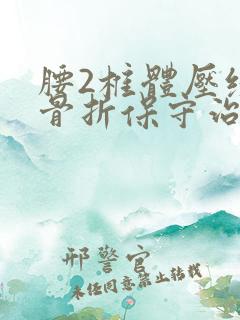 腰2椎體壓縮
骨折保守治
邢警官
未经同意禁止转载